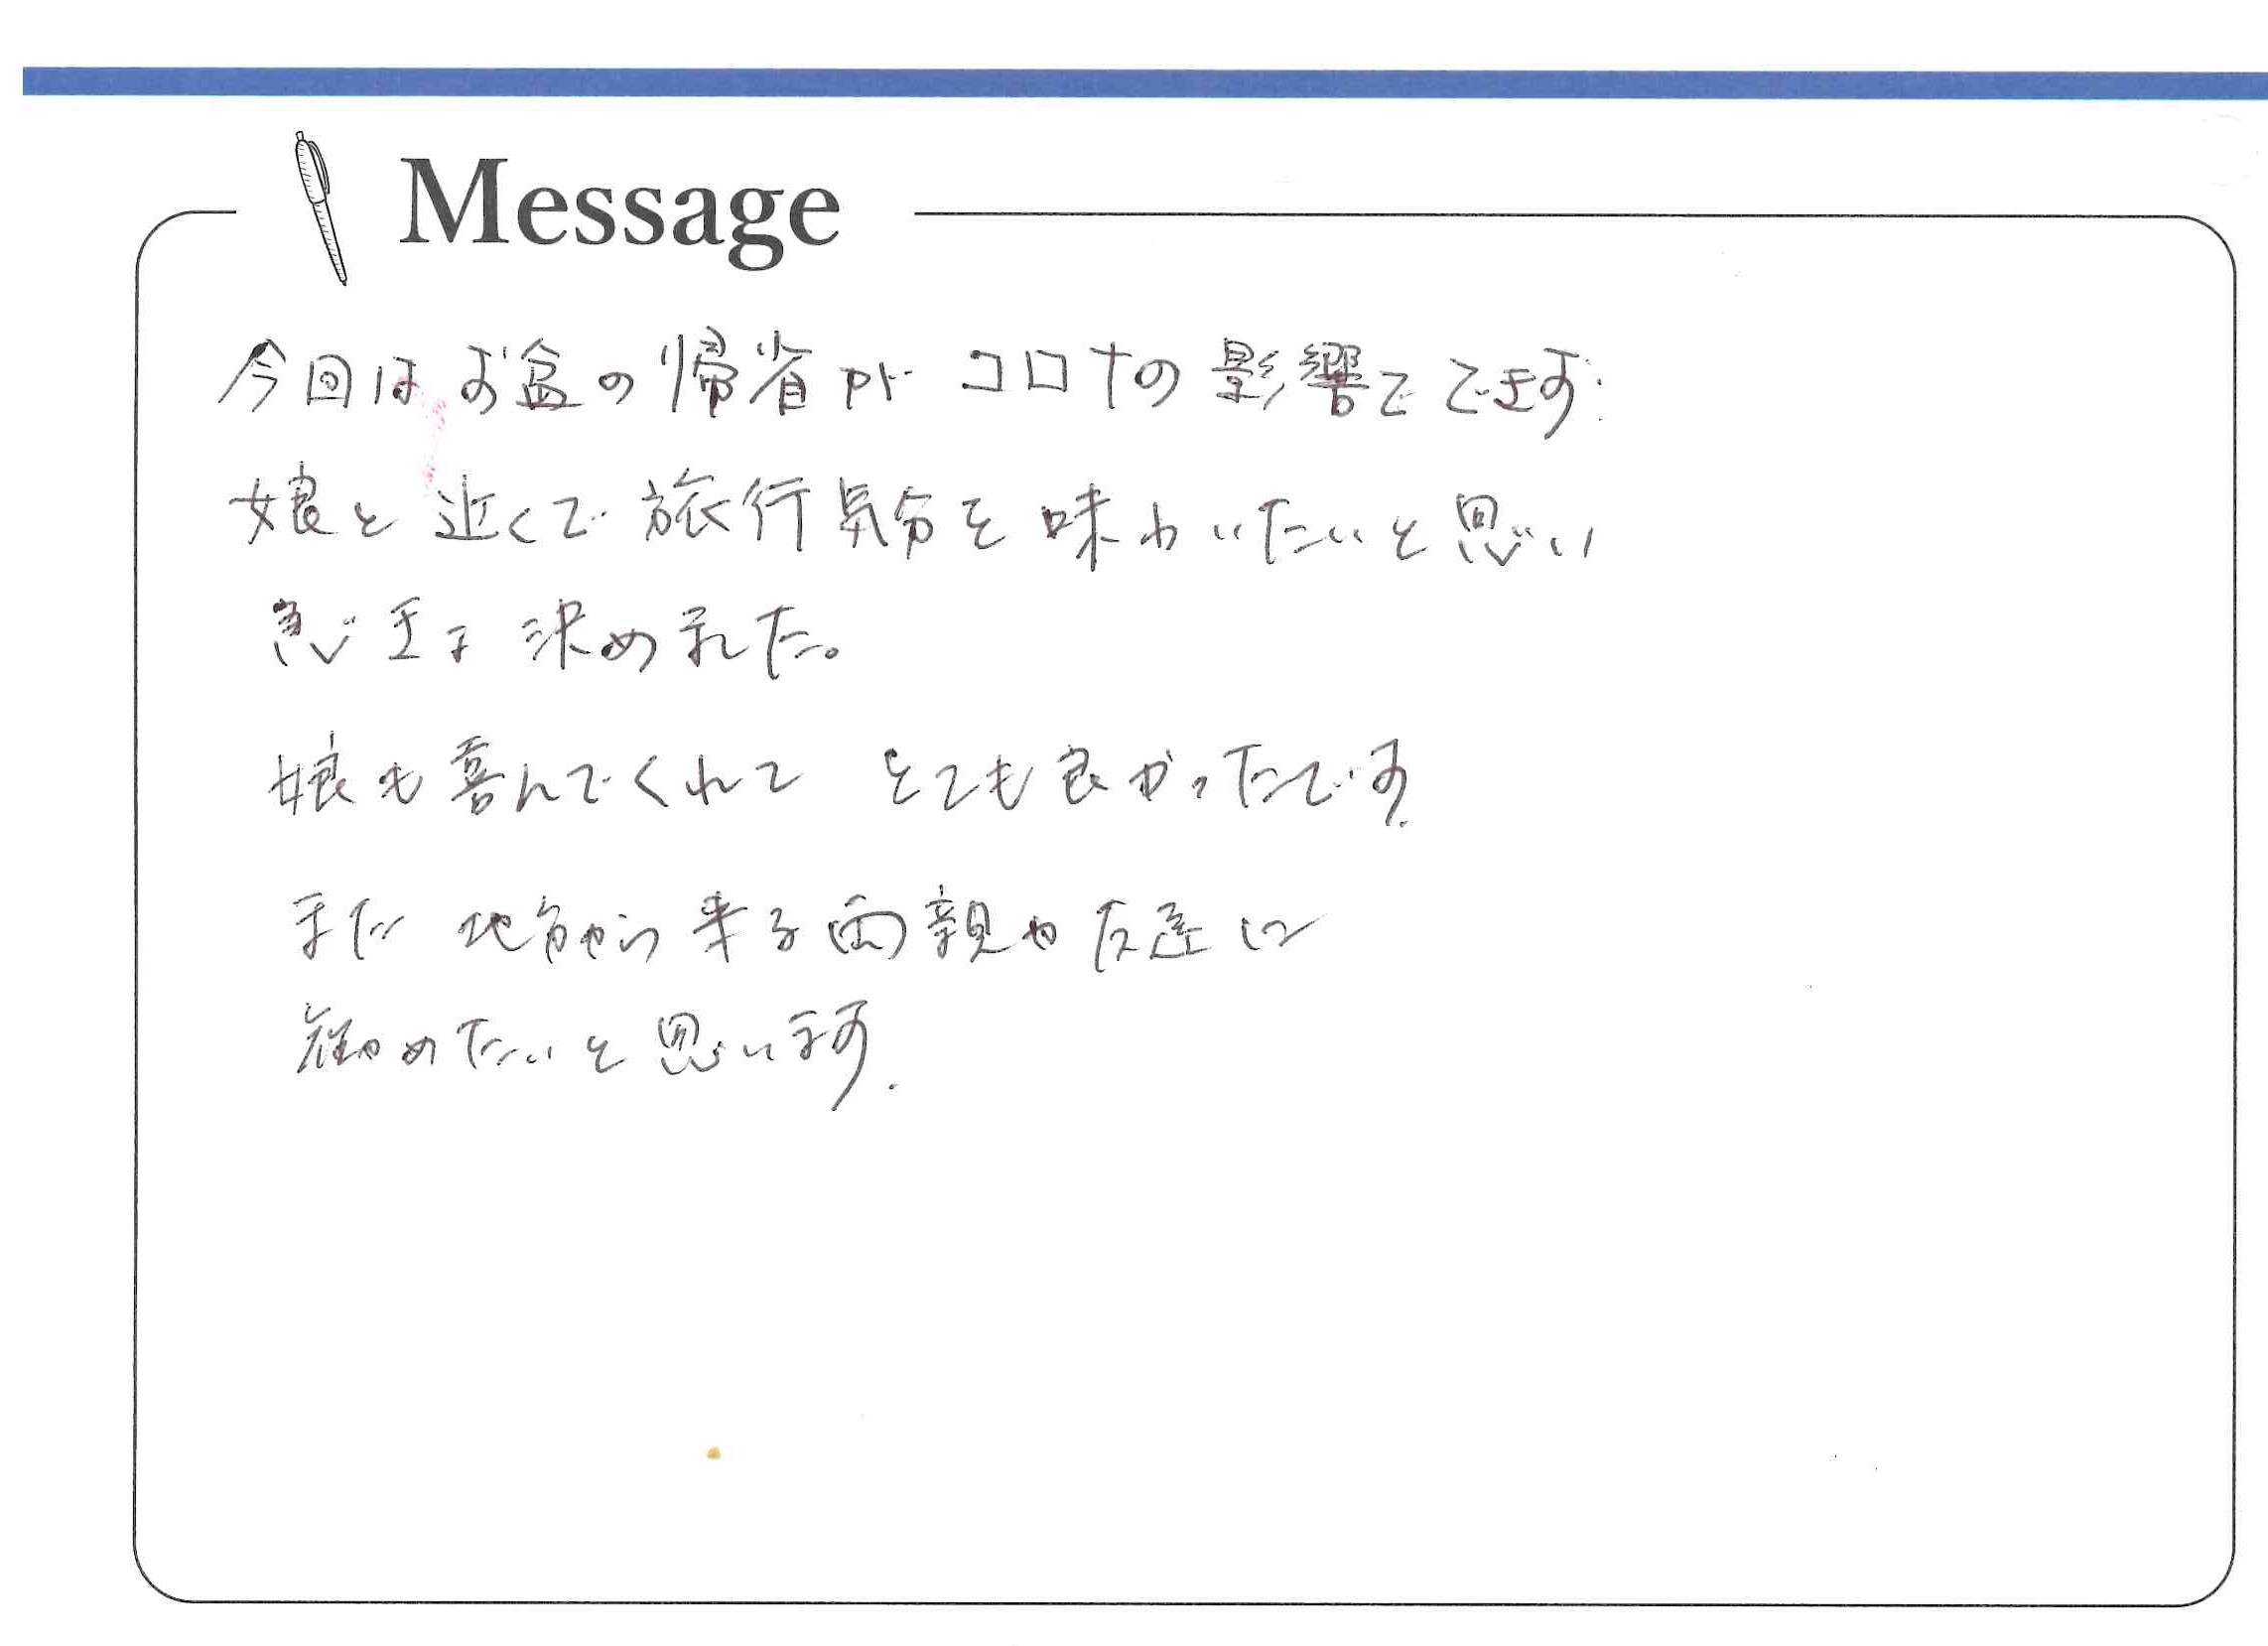 Message
今回はお盆の帰省が コロナの影響で できず
娘と 近くで 旅行気分を 味わいたいと思い
急きょ 決めました。
娘も喜んでくれて とても良かったです
また 地方から 来る両親や友達に
勧めたいと思います.